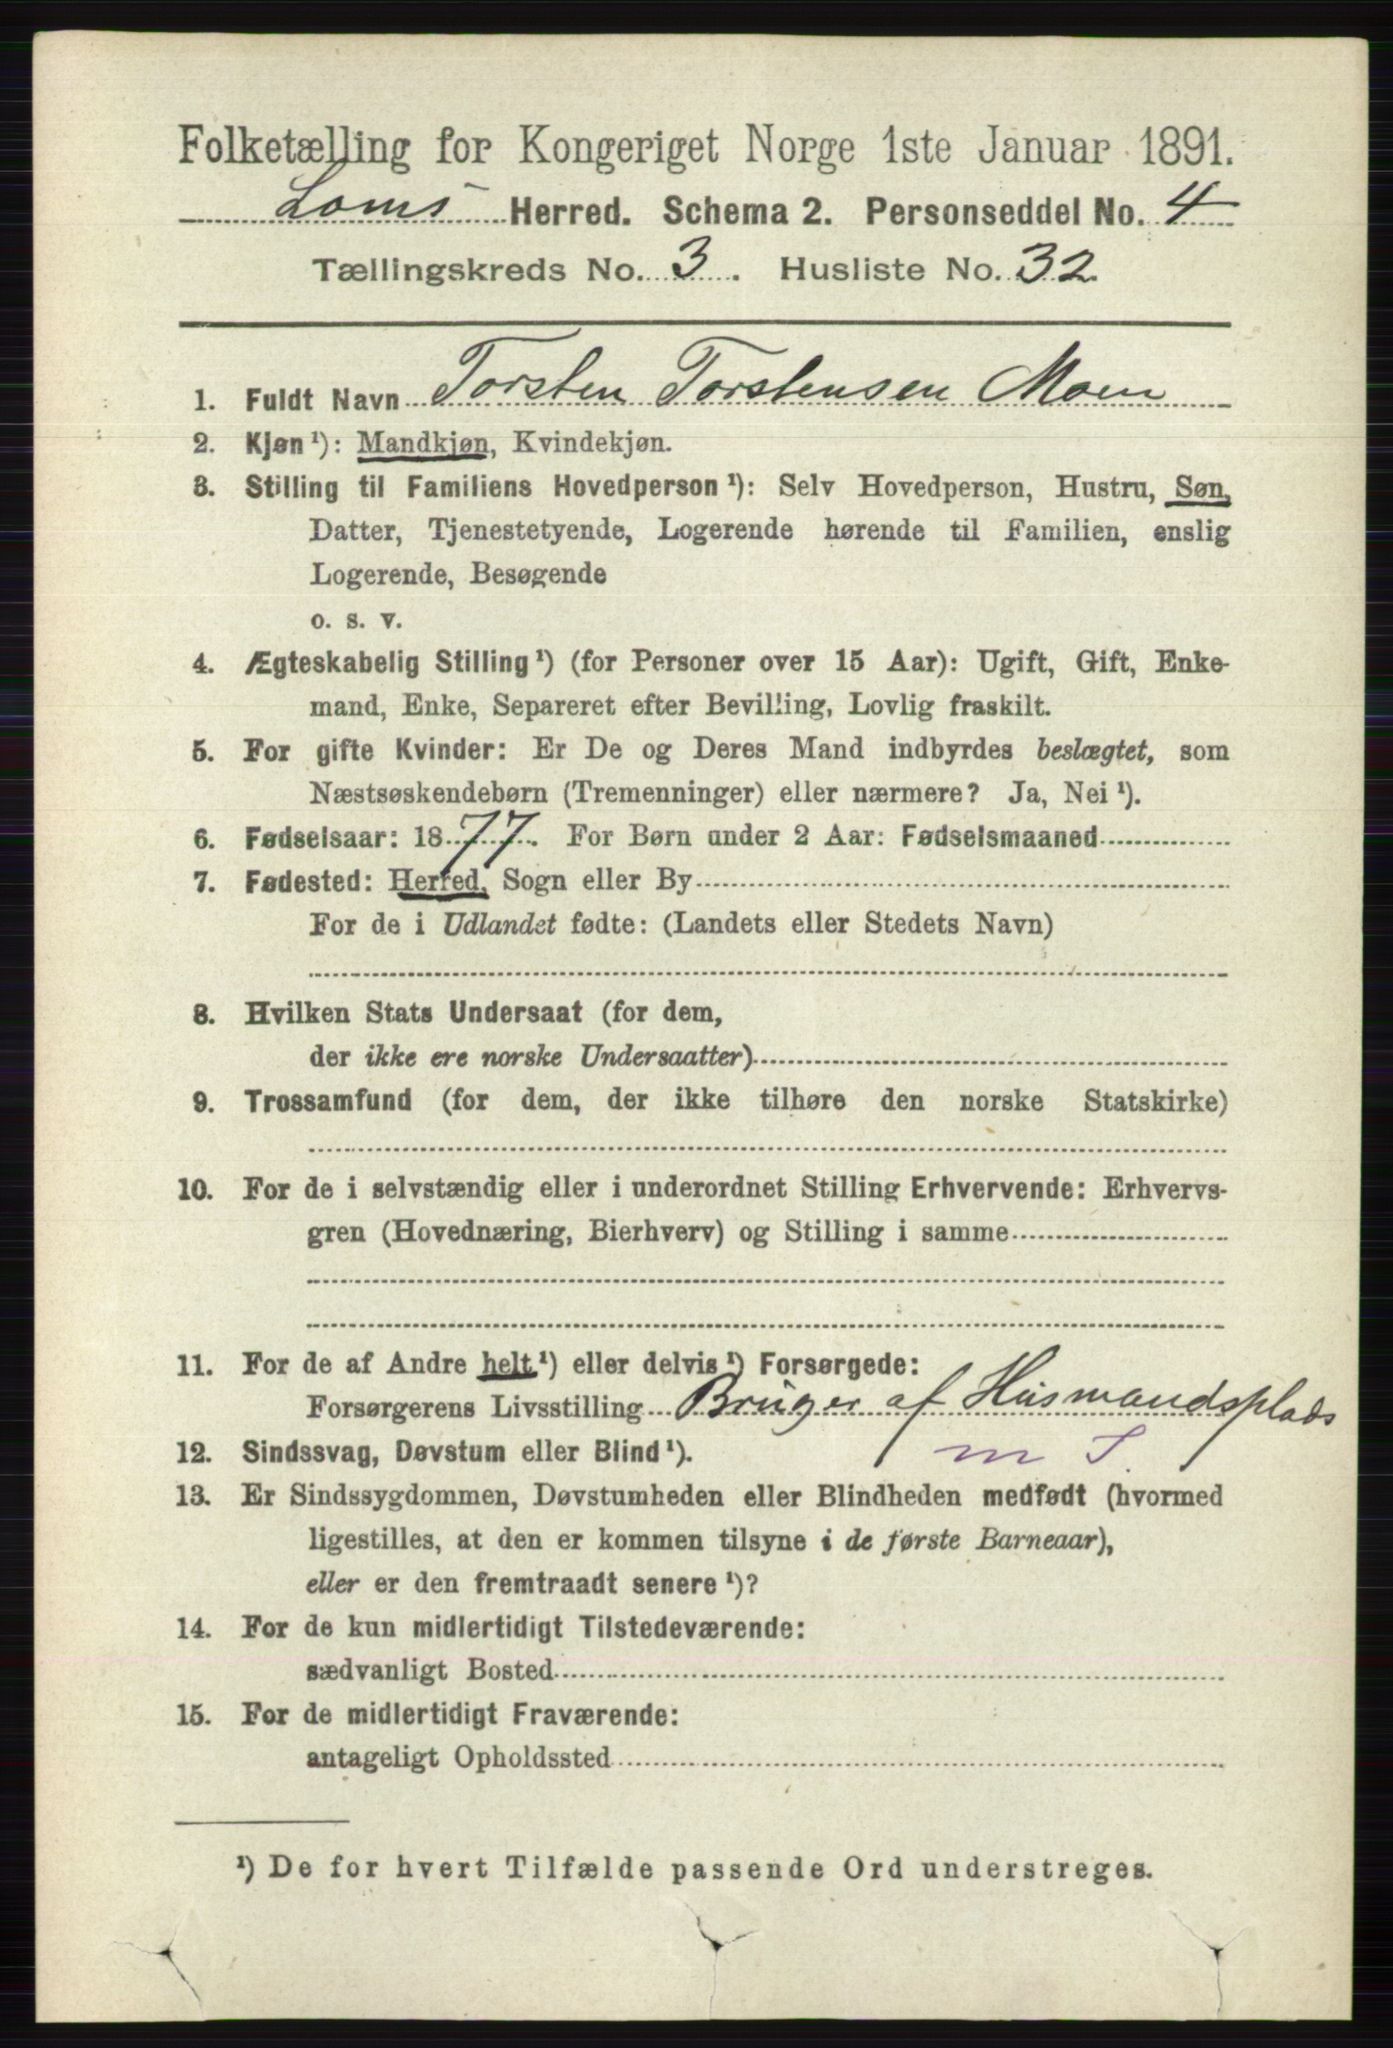 Folketælling for Kongeriget Norge 1ste Januar 1891.
Loms Herred. Schema 2. Personseddel No. 4
Tællingskreds No. 3. Husliste No. 32.
1. Fuldt Navn Torsten Torstensen Moen
2. Kjøn¹): Mandkjøn, Kvindekjøn.
3. Stilling til Familiens Hovedperson¹): Selv Hovedperson, Hustru, Søn,
Datter, Tjenestetyende, Logerende hørende til Familien, enslig
Logerende, Besøgende
o. s. v.
4. Ægteskabelig Stilling¹) (for Personer over 15 Aar): Ugift, Gift, Enke-
mand, Enke, Separeret efter Bevilling, Lovlig fraskilt.
5. For gifte Kvinder: Er De og Deres Mand indbyrdes beslægtet, som
Næstsøskendebørn (Tremenninger) eller nærmere? Ja, Nei¹).
6. Fødselsaar: 1877. For Børn under 2 Aar: Fødselsmaaned
7. Fødested: Herred, Sogn eller By
For de i Udlandet fødte: (Landets eller Stedets Navn)
8. Hvilken Stats Undersaat (for dem,
der ikke ere norske Undersaatter)
9. Trossamfund (for dem, der ikke tilhøre den norske Statskirke)
10. For de i selvstændig eller i underordnet Stilling Erhvervende: Erhvervs-
gren (Hovednæring, Bierhverv) og Stilling i samme
11. For de af Andre helt¹) eller delvis¹) Forsørgede:
Forsørgerens Livsstilling Bruger af Husmandsplads
m S.
12. Sindssvag, Døvstum eller Blind¹).
13. Er Sindssygdommen, Døvstumheden eller Blindheden medfødt (hvormed
ligestilles, at den er kommen tilsyne i de første Barneaar),
eller er den fremtraadt senere¹)?
14. For de kun midlertidigt Tilstedeværende:
sædvanligt Bosted
15. For de midlertidigt Fraværende:
antageligt Opholdssted
¹) De for hvert Tilfælde passende Ord understreges.